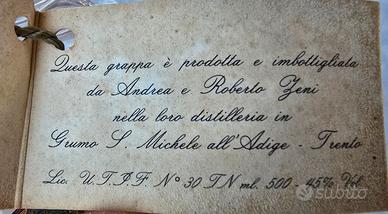 Questa grappa è prodotta e imbottigliata
da Andrea e Roberto Zeni
nella loro distilleria in
Grumo S. Michele all'Adige - Trento
Lic. U.T.P.F. N° 30 TN ml. 500 - 45% Vol
subito